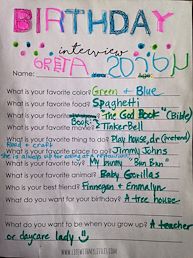 BIRTHDAY
interview
Name: GRETA
What is your favorite color? Green + Blue
What is your favorite food? Spaghetti
What is your favorite Book? The God Book" (Bible)
What is your favorite movie? TinkerBell
What is your favorite thing to do? Play House, dr (pretend)
+ craft
What is your favorite place to go? Jimmy Johns
she is always up for eating at a restaurant
What is your favorite toy? My bunny "Bun Bun"
What is your favorite animal? Baby Gorillas
Who is your best friend? Finnegan & Emmalyn
What do you want for your birthday? A tree house
What do you want to be when you grow up? A teacher
or daycare lady